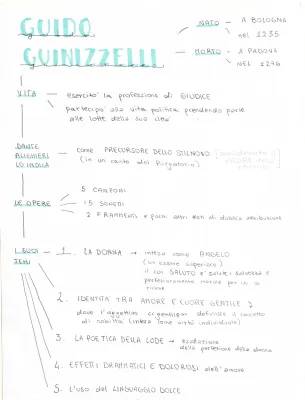 GUIDO
GUINIZZELLI
NATO → A BOLOGNA
nel 1235
MORTO → A PADOVA
NEL 1276
VITA → esercitò la professione di GIUDICE
partecipò alla vita politica prendendo parte
alle lotte della sua città
DANTE
ALIGHIERI
LO INDICA
come PRECURSORE DELLO STILNOVO
(in un canto del Purgatorio)
LE OPERE
5 CANZONI
15 SONETTI
2 FRAMMENTI e pochi altri testi di dubbia attribuzione
I SUOI
TEMI
1. LA DONNA → intesa come ANGELO
(un essere superiore)
il cui SALUTO è salute: salvezza e
perfezionamento morale per chi lo
riceve
2. IDENTITÀ TRA AMORE E CUORE GENTILE
dove l'aggettivo "gentile" definisce il concetto
di nobiltà (intesa come virtù individuale)
3. LA POETICA DELLA LODE → esaltazione
della perfezione della donna
4. EFFETTI DRAMMATICI E DOLOROSI dell'amore
5. L'uso del LINGUAGGIO DOLCE